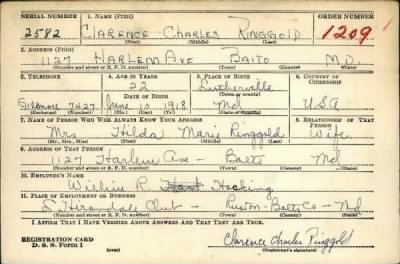 SERIAL NUMBER 1. NAME (Print) ORDER NUMBER
2582 CLARENCE CHARLES RINGGOLD 1209
(First) (Middle) (Last)
2. ADDRESS (Print)
1127 HARLEM AVE BALTO MD.
(Number and street or R. F. D. number) (Town) (County) (State)
3. TELEPHONE 4. AGE IN YEARS 5. PLACE OF BIRTH 6. COUNTRY OF CITIZENSHIP
22 Lutherville
DATE OF BIRTH (Town or county)
Gilmore 7427 June 10 1918 Md USA
(Exchange) (Number) (Mo.) (Day) (Yr.) (State or country)
7. NAME OF PERSON WHO WILL ALWAYS KNOW YOUR ADDRESS 8. RELATIONSHIP OF THAT PERSON
Mrs Hilda Marie Ringgold Wife
(Mr., Mrs., Miss) (First) (Middle) (Last)
9. ADDRESS OF THAT PERSON
1127 Harlem Ave - Balto Md
(Number and street or R. F. D. number) (Town) (County) (State)
10. EMPLOYER'S NAME
R. Hocking
11. PLACE OF EMPLOYMENT OR BUSINESS
L'Hirondelle Club - Ruxton - Balto Co - Md
(Number and street or R. F. D. number) (Town) (County) (State)
I AFFIRM THAT I HAVE VERIFIED ABOVE ANSWERS AND THAT THEY ARE TRUE.
REGISTRATION CARD
D. S. S. Form 1 (over) Clarence Charles Ringgold
(Registrant's signature)